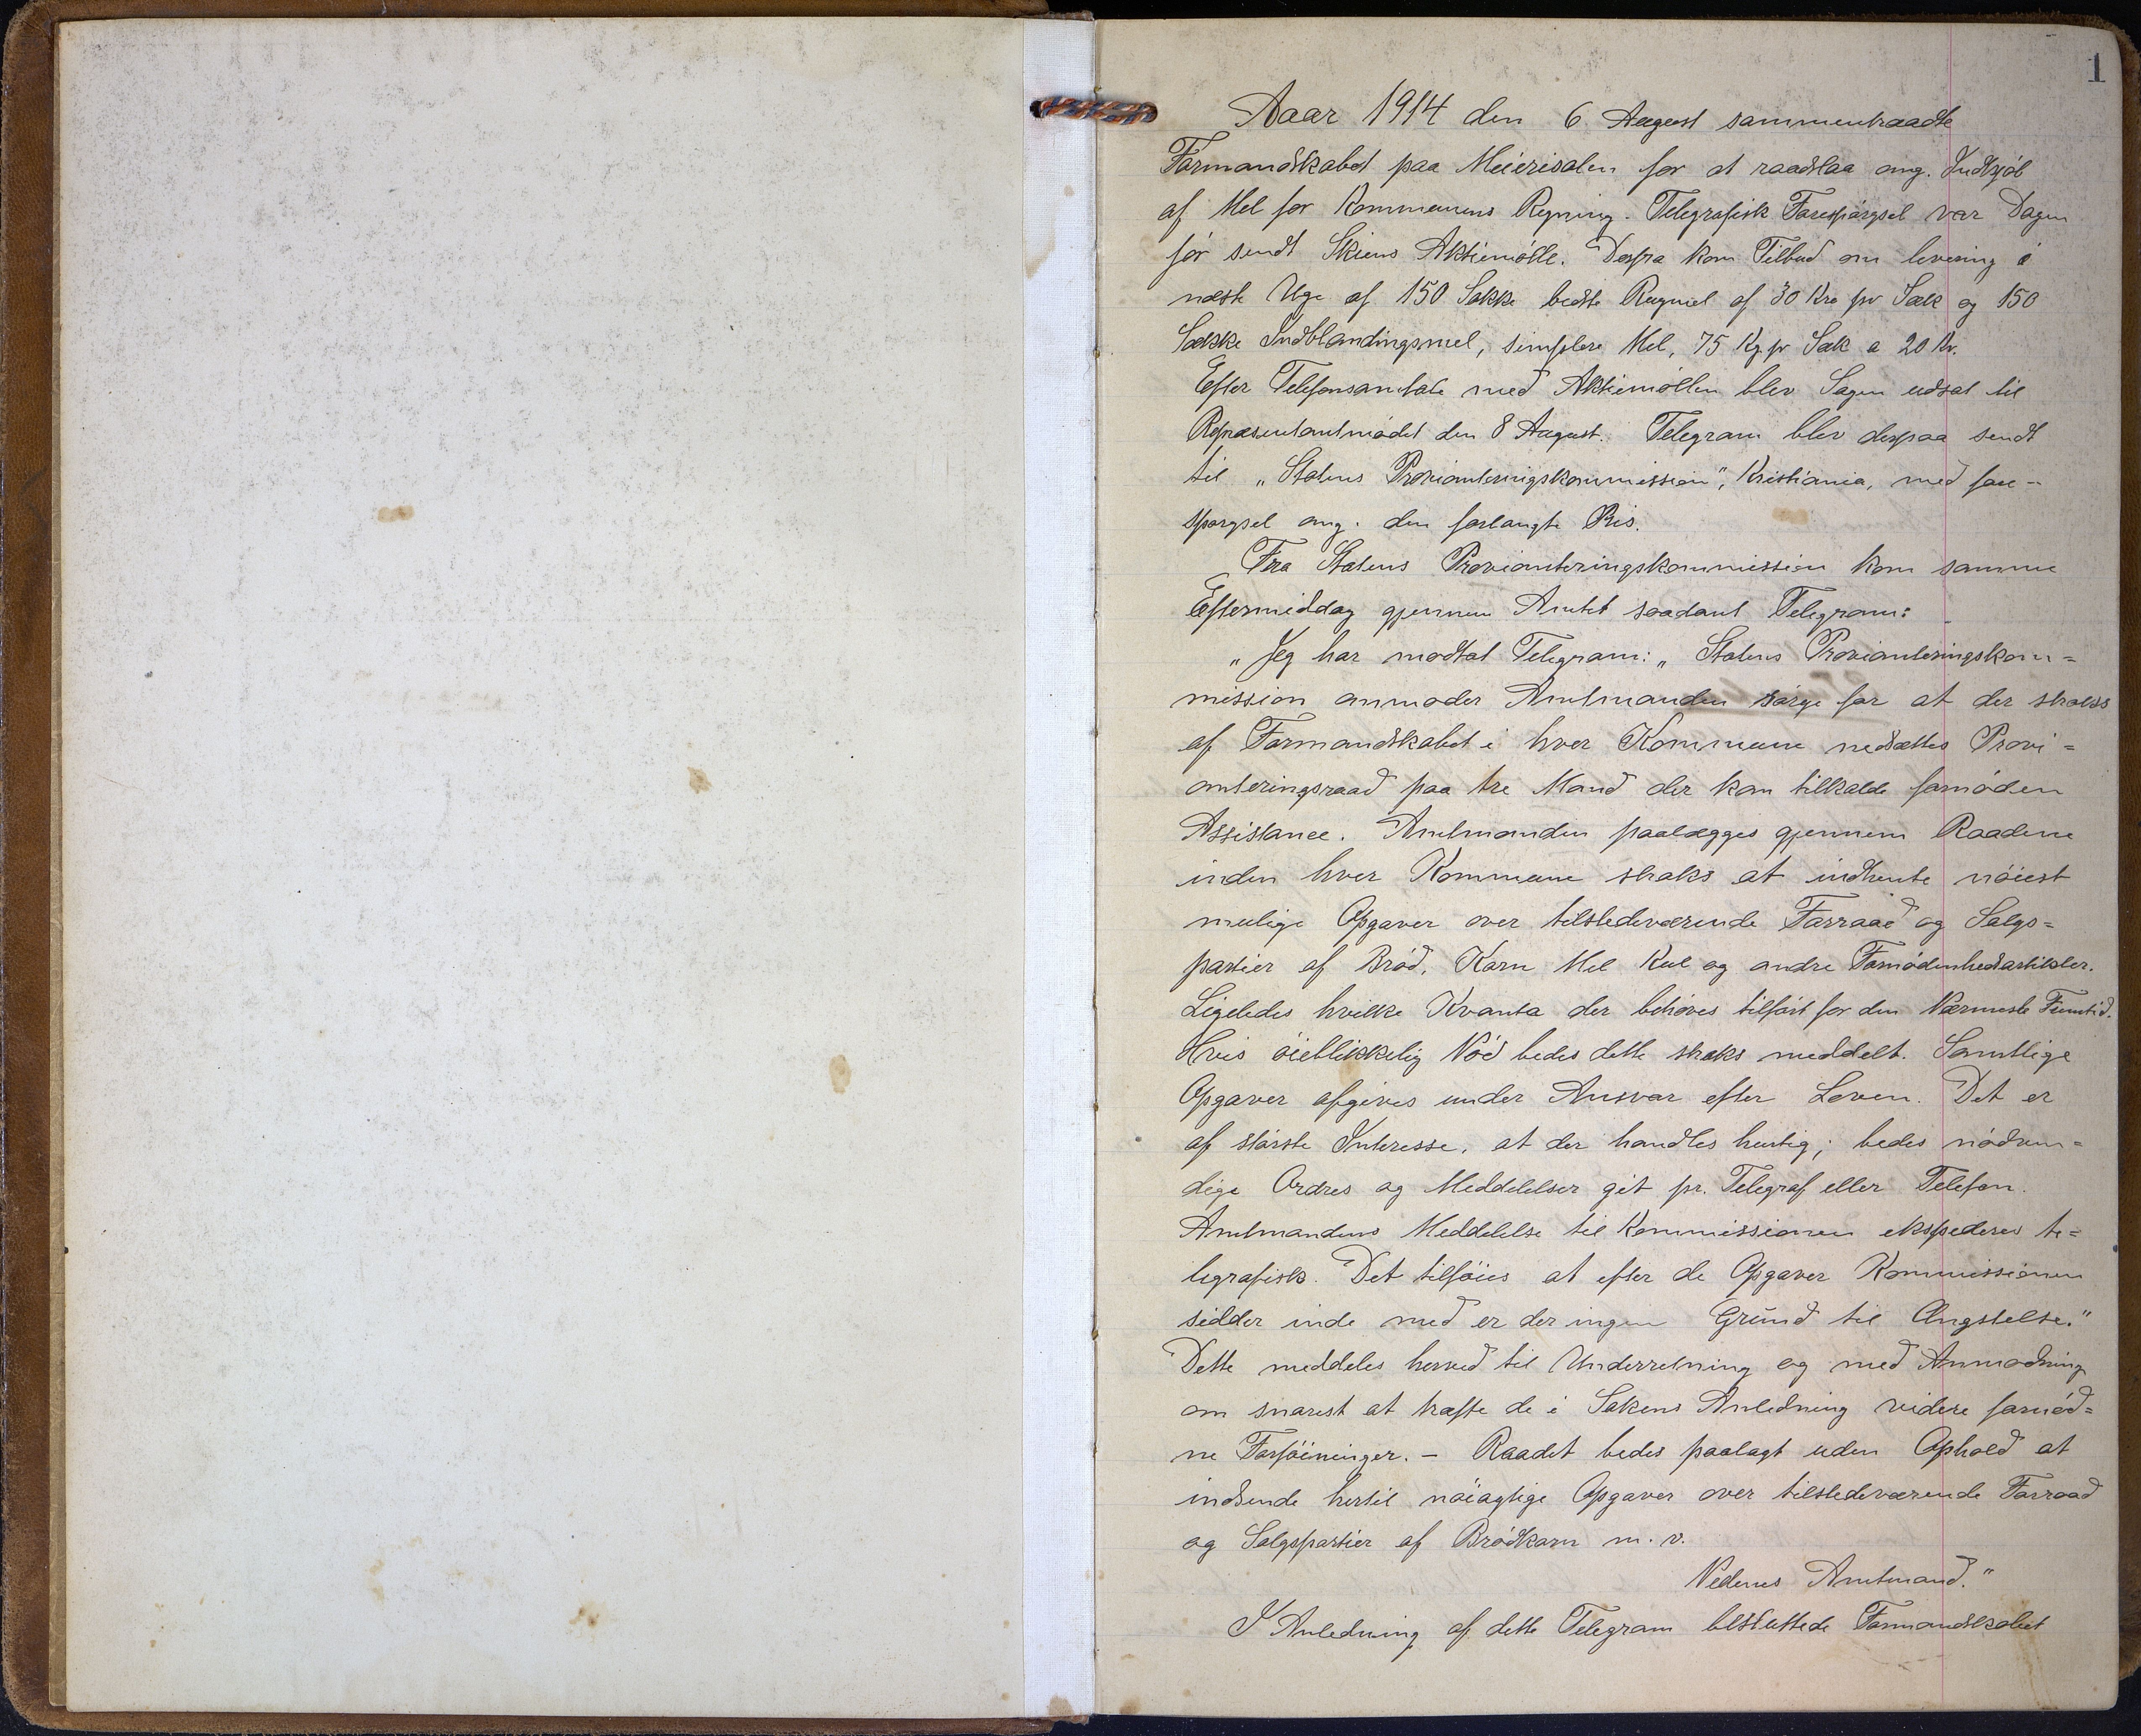 1
Aaar 1914 den 6 August sammentraadte
Formandskabet paa Meierisalen for at raadslaa ang. Indkjøb
af Mel for Kommunens Regning. Telegrafisk Forespørgsel var Dagen
før sendt Skiens Aktiemølle. Derfra kom Tilbud om levering i
næste Uge af 150 Sække bedste Rugmel af 30 Kro pr Sæk og 150
Sække Indblandingsmel, simplere Mel, 75 Kg. pr Sæk a 20 Kr.
Efter Telefonsamtale med Aktiemøllen blev Sagen udsat til
Repræsentantmødet den 8 August. Telegram blev derpaa sendt
til „Statens Provianteringskommission", Kristiania, med fore-
spørgsel ang. den forlangte Pris.
Fra Statens Provianteringskommission kom samme
Eftermiddag gjennem Amtet saadant Telegram:
„Jeg har modtat Telegram: „Statens Provianteringskom=
mission anmoder Amtmanden sørge for at der straks
af Formandskabet i hver Kommune nedsættes Provi=
anteringsraad paa tre Mand der kan tilkalde fornøden
Assistance. Amtmanden paalægges gjennem Raadene
inden hver Kommune straks at indhente nøiest
mulige Opgaver over tilstedeværende Forraad og Salgs=
partier af Brød, Korn Mel Kul og andre Fornødenhedsartikler.
Ligeledes hvilke Kvanta der behøves tilført for den Nærmeste Fremtid.
Hvis øieblikkelig Nød bedes dette straks meddelt. Samtlige
Opgaver afgives under Ansvar efter Loven. Det er
af største Interesse, at der handles hurtig; bedes nødven=
dige Ordres og Meddelelser git pr. Telegraf eller Telefon.
Amtmandens Meddelelse til Kommissionen ekspederes te=
legrafisk. Det tilføies at efter de Opgaver Kommissionen
sidder inde med er der ingen Grund til Ængstelse."
Dette meddeles herved til Underretning og med Anmodning
om snarest at træffe de i Sakens Anledning videre fornød=
ne Forføininger. – Raadet bedes paalagt uden Ophold at
indsende hertil nøiagtige Opgaver over tilstedeværende Forraad
og Salgspartier af Brødkorn m. v.
Nedenes Amtmand."
I Anledning af dette Telegram besluttede Formandskabet